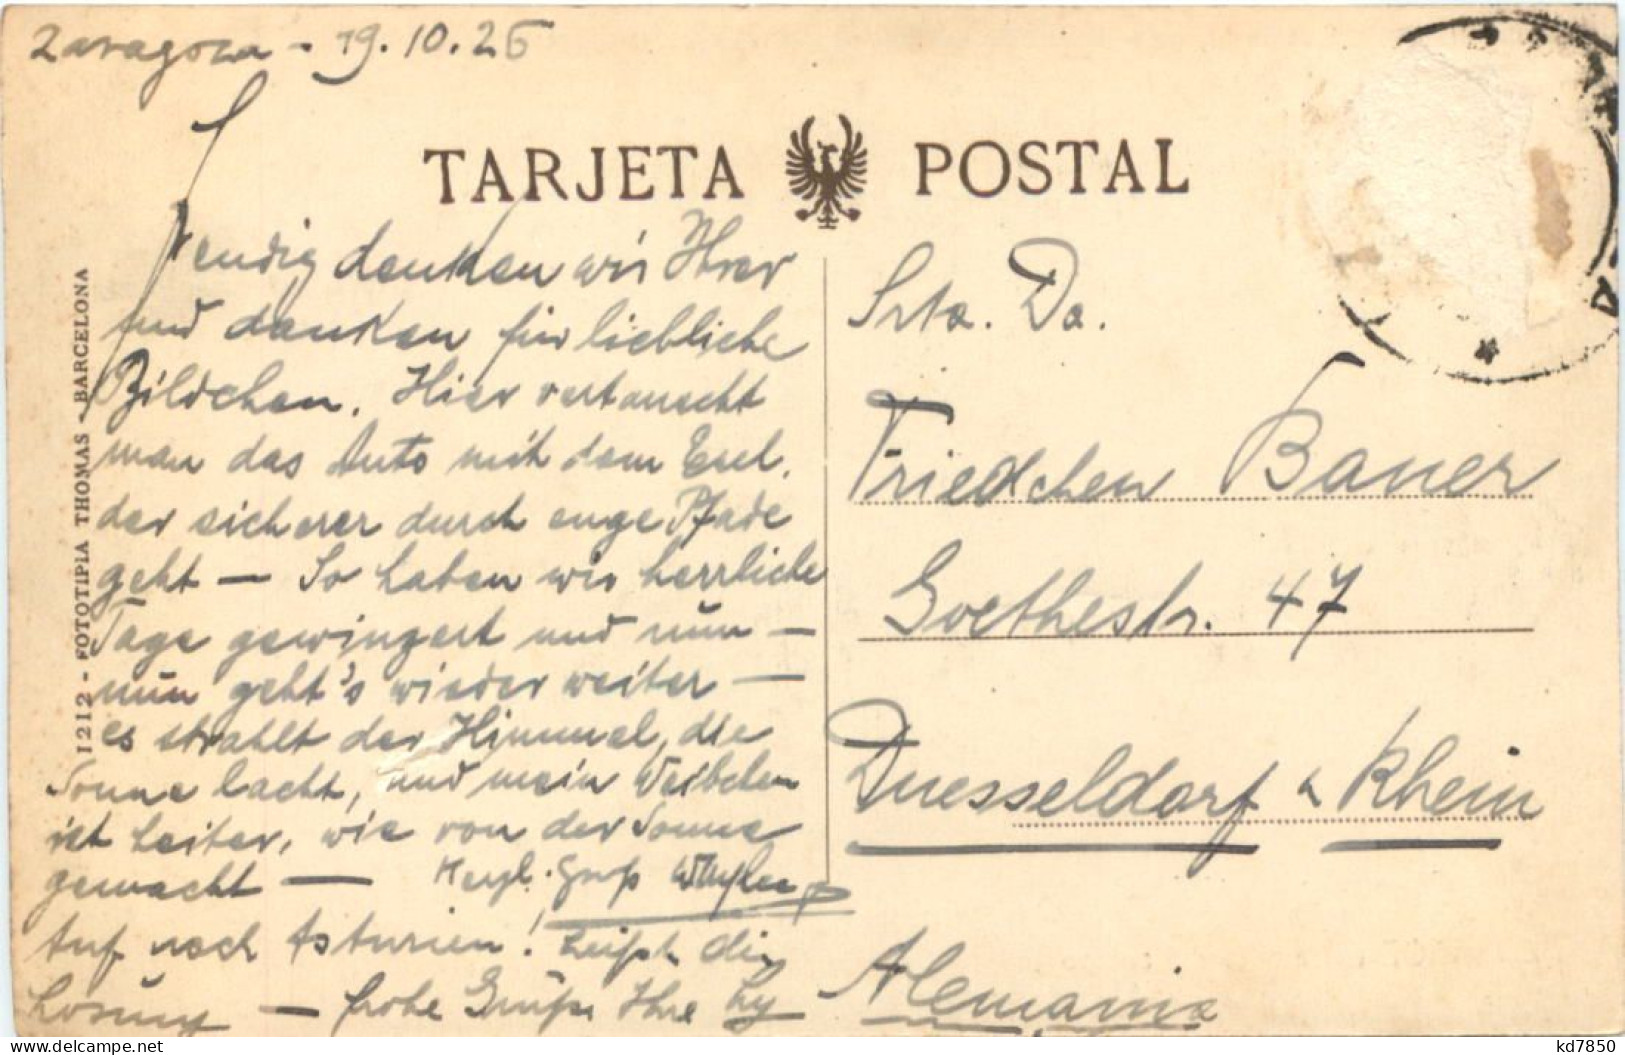 Zaragoza - 19.10.26
TARJETA POSTAL
denken wir Ihrer
und danken für liebliche
Bildchen. Hier vertauscht
man das Auto mit dem Esel,
der sicherer durch enge Pfade
geht — So haben wir herrliche
Tage und nun —
nun geht's wieder weiter —
es strahlt der Himmel, die
Sonne lacht, und mein Weibchen
ist heiter, wie von der Sonne
gemacht — Herzl. Gruß
Auf nach Asturien! heißt die
Losung — frohe Grüße Ihre
1212 - FOTOTIPIA THOMAS - BARCELONA
Srta. Da.
Friedchen Bauer
Goethestr. 47
Duesseldorf a Rhein
Alemania
kd7850